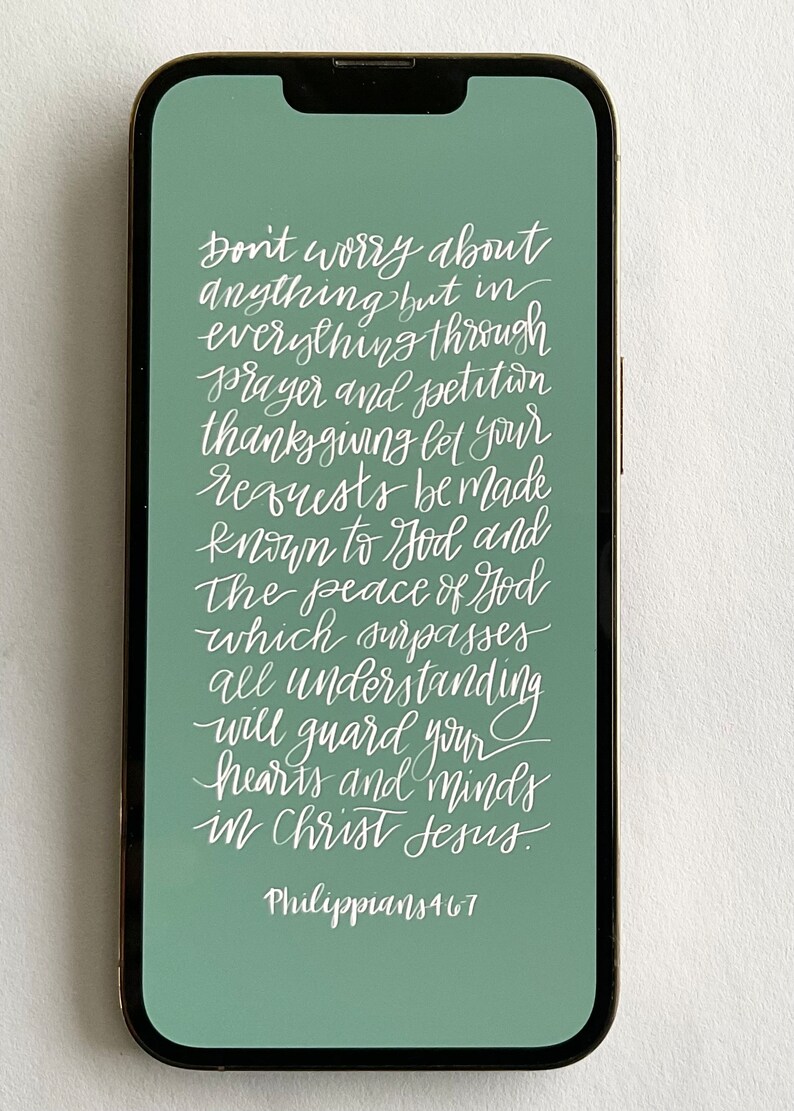 Don't worry about
anything but in
everything through
prayer and petition
thanksgiving let your
requests be made
known to God and
the peace of God
which surpasses
all understanding
will guard your
hearts and minds
in Christ Jesus.
Philippians 4 6-7